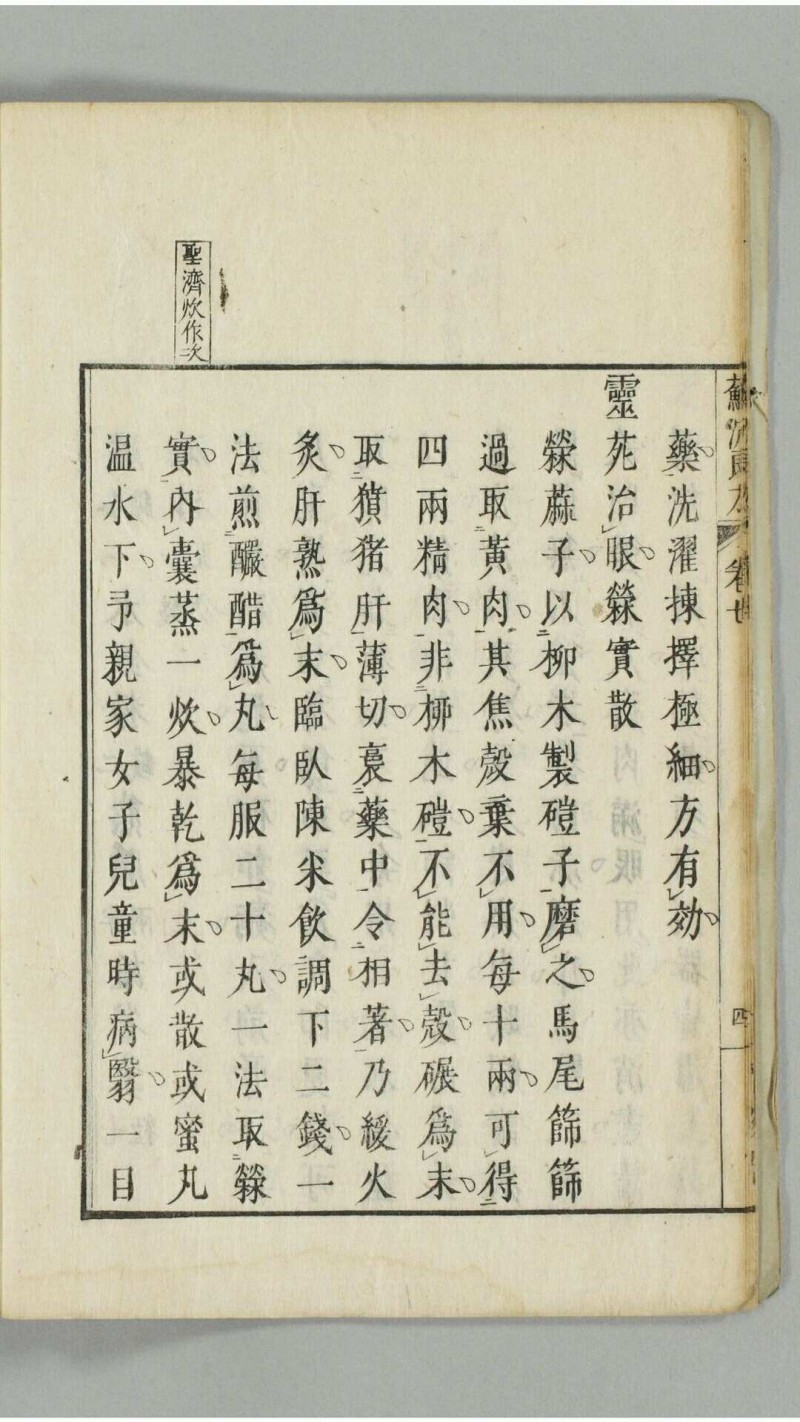 蘇沈良方 卷七 四
藥洗濯揀擇極細方有効
靈苑治眼䔛實散
䔛蔴子以柳木製磑子磨之馬尾篩篩
過取黃肉其焦殼棄不用每十兩可得
四兩精肉非柳木磑不能去殼碾爲末
取豶猪肝薄切裛藥中令相著乃緩火
炙肝熟爲末臨臥陳米飲調下二錢一
法煎釅醋爲丸每服二十丸一法取䔛
實內囊蒸一炊暴乾爲末或散或蜜丸
温水下予親家女子兒童時病翳一目
聖濟炊作次